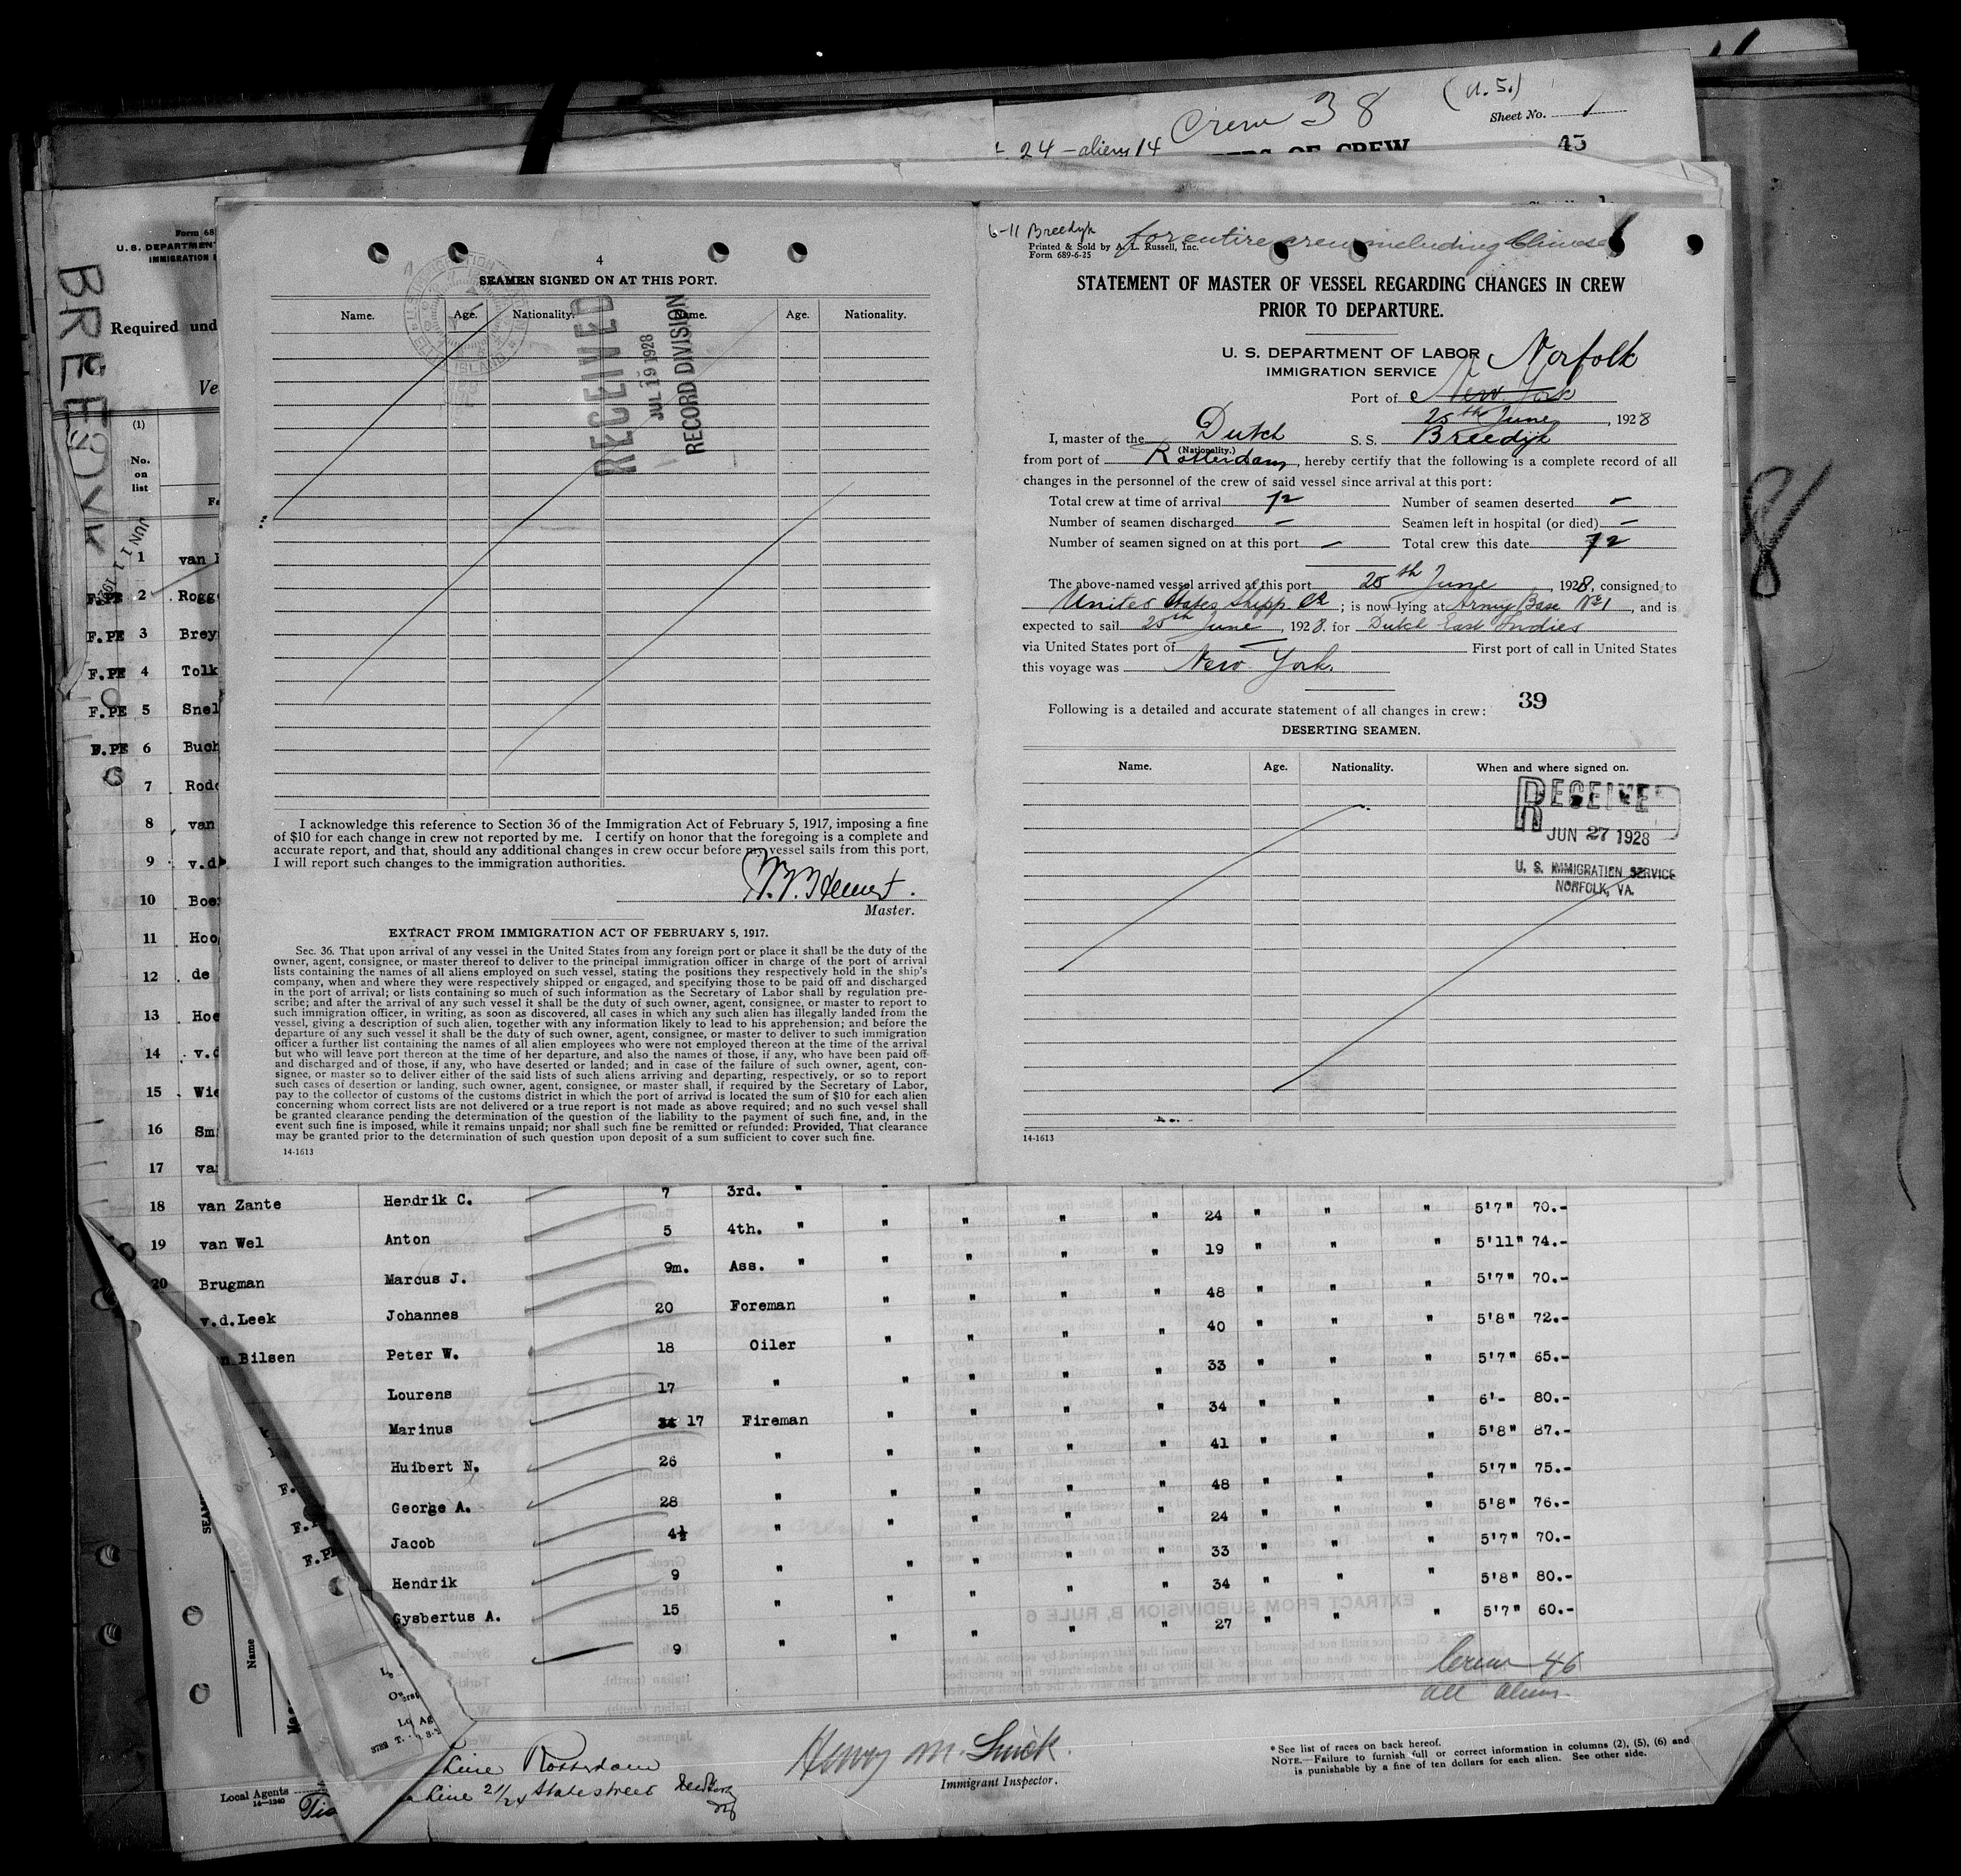 Crew 38 (U.S.)
Sheet No. 1
24 - aliens 14
45
BREEDYK
Form 68
U. S. DEPARTMEN
IMMIGRATION
Required und
Ve
(1)
No.
on
list
JUN 1 1
1 van
F.PE 2 Rogg
F.PE 3 Brey
F.PE 4 Tolk
F.PE 5 Snel
F.PE 6 Buch
7 Rod
8 van
9 v.d
10 Boe
11 Hoo
12 de
13 Hoe
14 v.d
15 Wie
16 Sm
17 va
4
SEAMEN SIGNED ON AT THIS PORT.
Name. Age. Nationality. Name. Age. Nationality.
RECEIVED
JUL 19 1928
RECORD DIVISION
I acknowledge this reference to Section 36 of the Immigration Act of February 5, 1917, imposing a fine
of $10 for each change in crew not reported by me. I certify on honor that the foregoing is a complete and
accurate report, and that, should any additional changes in crew occur before my vessel sails from this port,
I will report such changes to the immigration authorities.
Master.
EXTRACT FROM IMMIGRATION ACT OF FEBRUARY 5, 1917.
Sec. 36. That upon arrival of any vessel in the United States from any foreign port or place it shall be the duty of the
owner, agent, consignee, or master thereof to deliver to the principal immigration officer in charge of the port of arrival
lists containing the names of all aliens employed on such vessel, stating the positions they respectively hold in the ship's
company, when and where they were respectively shipped or engaged, and specifying those to be paid off and discharged
in the port of arrival; or lists containing so much of such information as the Secretary of Labor shall by regulation pre-
scribe; and after the arrival of any such vessel it shall be the duty of such owner, agent, consignee, or master to report to
such immigration officer, in writing, as soon as discovered, all cases in which any such alien has illegally landed from the
vessel, giving a description of such alien, together with any information likely to lead to his apprehension; and before the
departure of any such vessel it shall be the duty of such owner, agent, consignee, or master to deliver to such immigration
officer a further list containing the names of all alien employees who were not employed thereon at the time of the arrival
but who will leave port thereon at the time of her departure, and also the names of those, if any, who have been paid off
and discharged and of those, if any, who have deserted or landed; and in case of the failure of such owner, agent, con-
signee, or master so to deliver either of the said lists of such aliens arriving and departing, respectively, or so to report
such cases of desertion or landing, such owner, agent, consignee, or master shall, if required by the Secretary of Labor,
pay to the collector of customs of the customs district in which the port of arrival is located the sum of $10 for each alien
concerning whom correct lists are not delivered or a true report is not made as above required; and no such vessel shall
be granted clearance pending the determination of the question of the liability to the payment of such fine, and, in the
event such fine is imposed, while it remains unpaid; nor shall such fine be remitted or refunded: Provided, That clearance
may be granted prior to the determination of such question upon deposit of a sum sufficient to cover such fine.
14-1613
6-11 Breedyk for entire crew including Chinese
Printed & Sold by A. L. Russell, Inc.
Form 689-6-25
STATEMENT OF MASTER OF VESSEL REGARDING CHANGES IN CREW
PRIOR TO DEPARTURE.
U. S. DEPARTMENT OF LABOR
IMMIGRATION SERVICE
Norfolk
Port of New York
25th June, 1928
I, master of the Dutch S. S. Breedijk
(Nationality.)
from port of Rotterdam, hereby certify that the following is a complete record of all
changes in the personnel of the crew of said vessel since arrival at this port:
Total crew at time of arrival 72 Number of seamen deserted -
Number of seamen discharged - Seamen left in hospital (or died) -
Number of seamen signed on at this port - Total crew this date 72
The above-named vessel arrived at this port 25th June, 1928, consigned to
United States Shipp Co; is now lying at Army Base No 1, and is
expected to sail 25th June, 1928. for Dutch East Indies
via United States port of - First port of call in United States
this voyage was New York.
39
Following is a detailed and accurate statement of all changes in crew:
DESERTING SEAMEN.
Name. Age. Nationality. When and where signed on.
RECEIVED
JUN 27 1928
U. S. IMMIGRATION SERVICE
NORFOLK, VA.
14-1613
18 van Zante Hendrik C. 7 3rd. " " " " " 24 " " " 5'7" 70.-
19 van Wel Anton 5 4th. " " " " " 19 " " " 5'11" 74.-
20 Brugman Marcus J. 9m. Ass. " " " " " 48 " " " 5'7" 70.-
v.d.Leek Johannes 20 Foreman " " " " 40 " " " 5'8" 72.-
n Bilsen Peter W. 18 Oiler " " " " 33 " " " 5'7" 65.-
Lourens 17 " " " " " 34 " " " 6'- 80.-
Marinus 17 Fireman " " " " 41 " " " 5'8" 87.-
Huibert N. 26 " " " " " 48 " " " 5'7" 75.-
George A. 28 " " " " " 24 " " " 5'8" 76.-
Jacob 4½ " " " " " 33 " " " 5'7" 70.-
Hendrik 9 " " " " " 34 " " " 5'8" 80.-
Gysbertus A. 15 " " " " " 27 " " " 5'7" 60.-
9
SEAM
Name
F.
F.PE
Crew 46
all aliens
Line Rotterdam
Line 21/24 Statestreet
Local Agents
14-1240
Immigrant Inspector.
* See list of races on back hereof.
NOTE.—Failure to furnish full or correct information in columns (2), (5), (6) and
is punishable by a fine of ten dollars for each alien. See other side.
EXTRACT FROM SUBDIVISION B, RULE 6